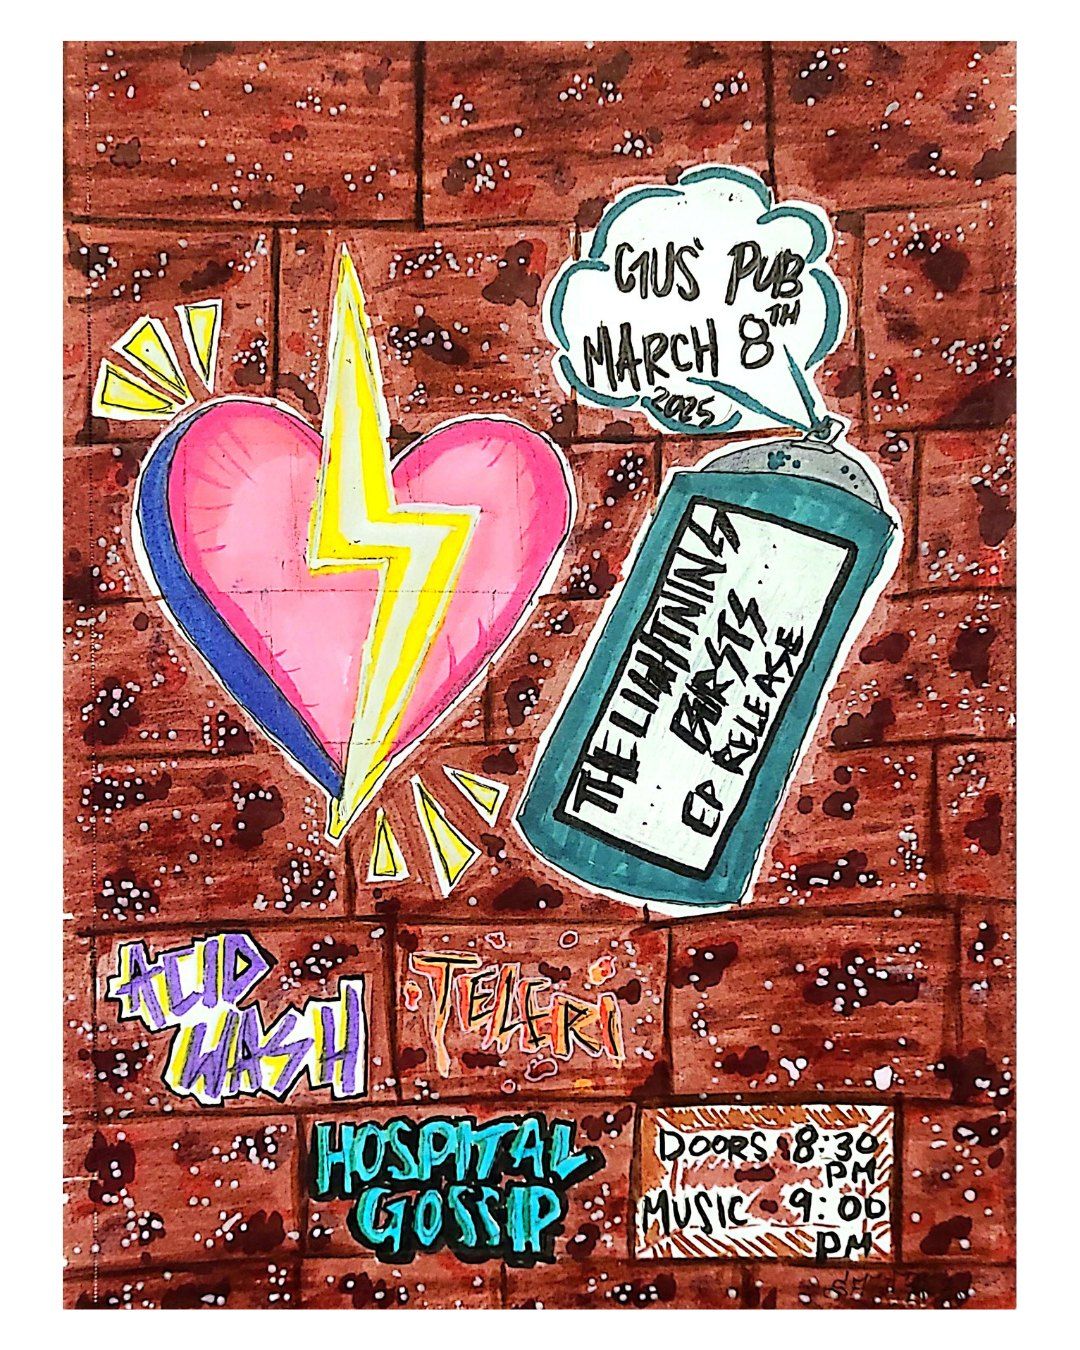 GUS' PUB
MARCH 8TH
2025
THE LIGHTNING
BURSTS
EP RELEASE
ACID
WASH
TELERI
HOSPITAL
GOSSIP
DOORS 8:30
PM
MUSIC 9:00
PM